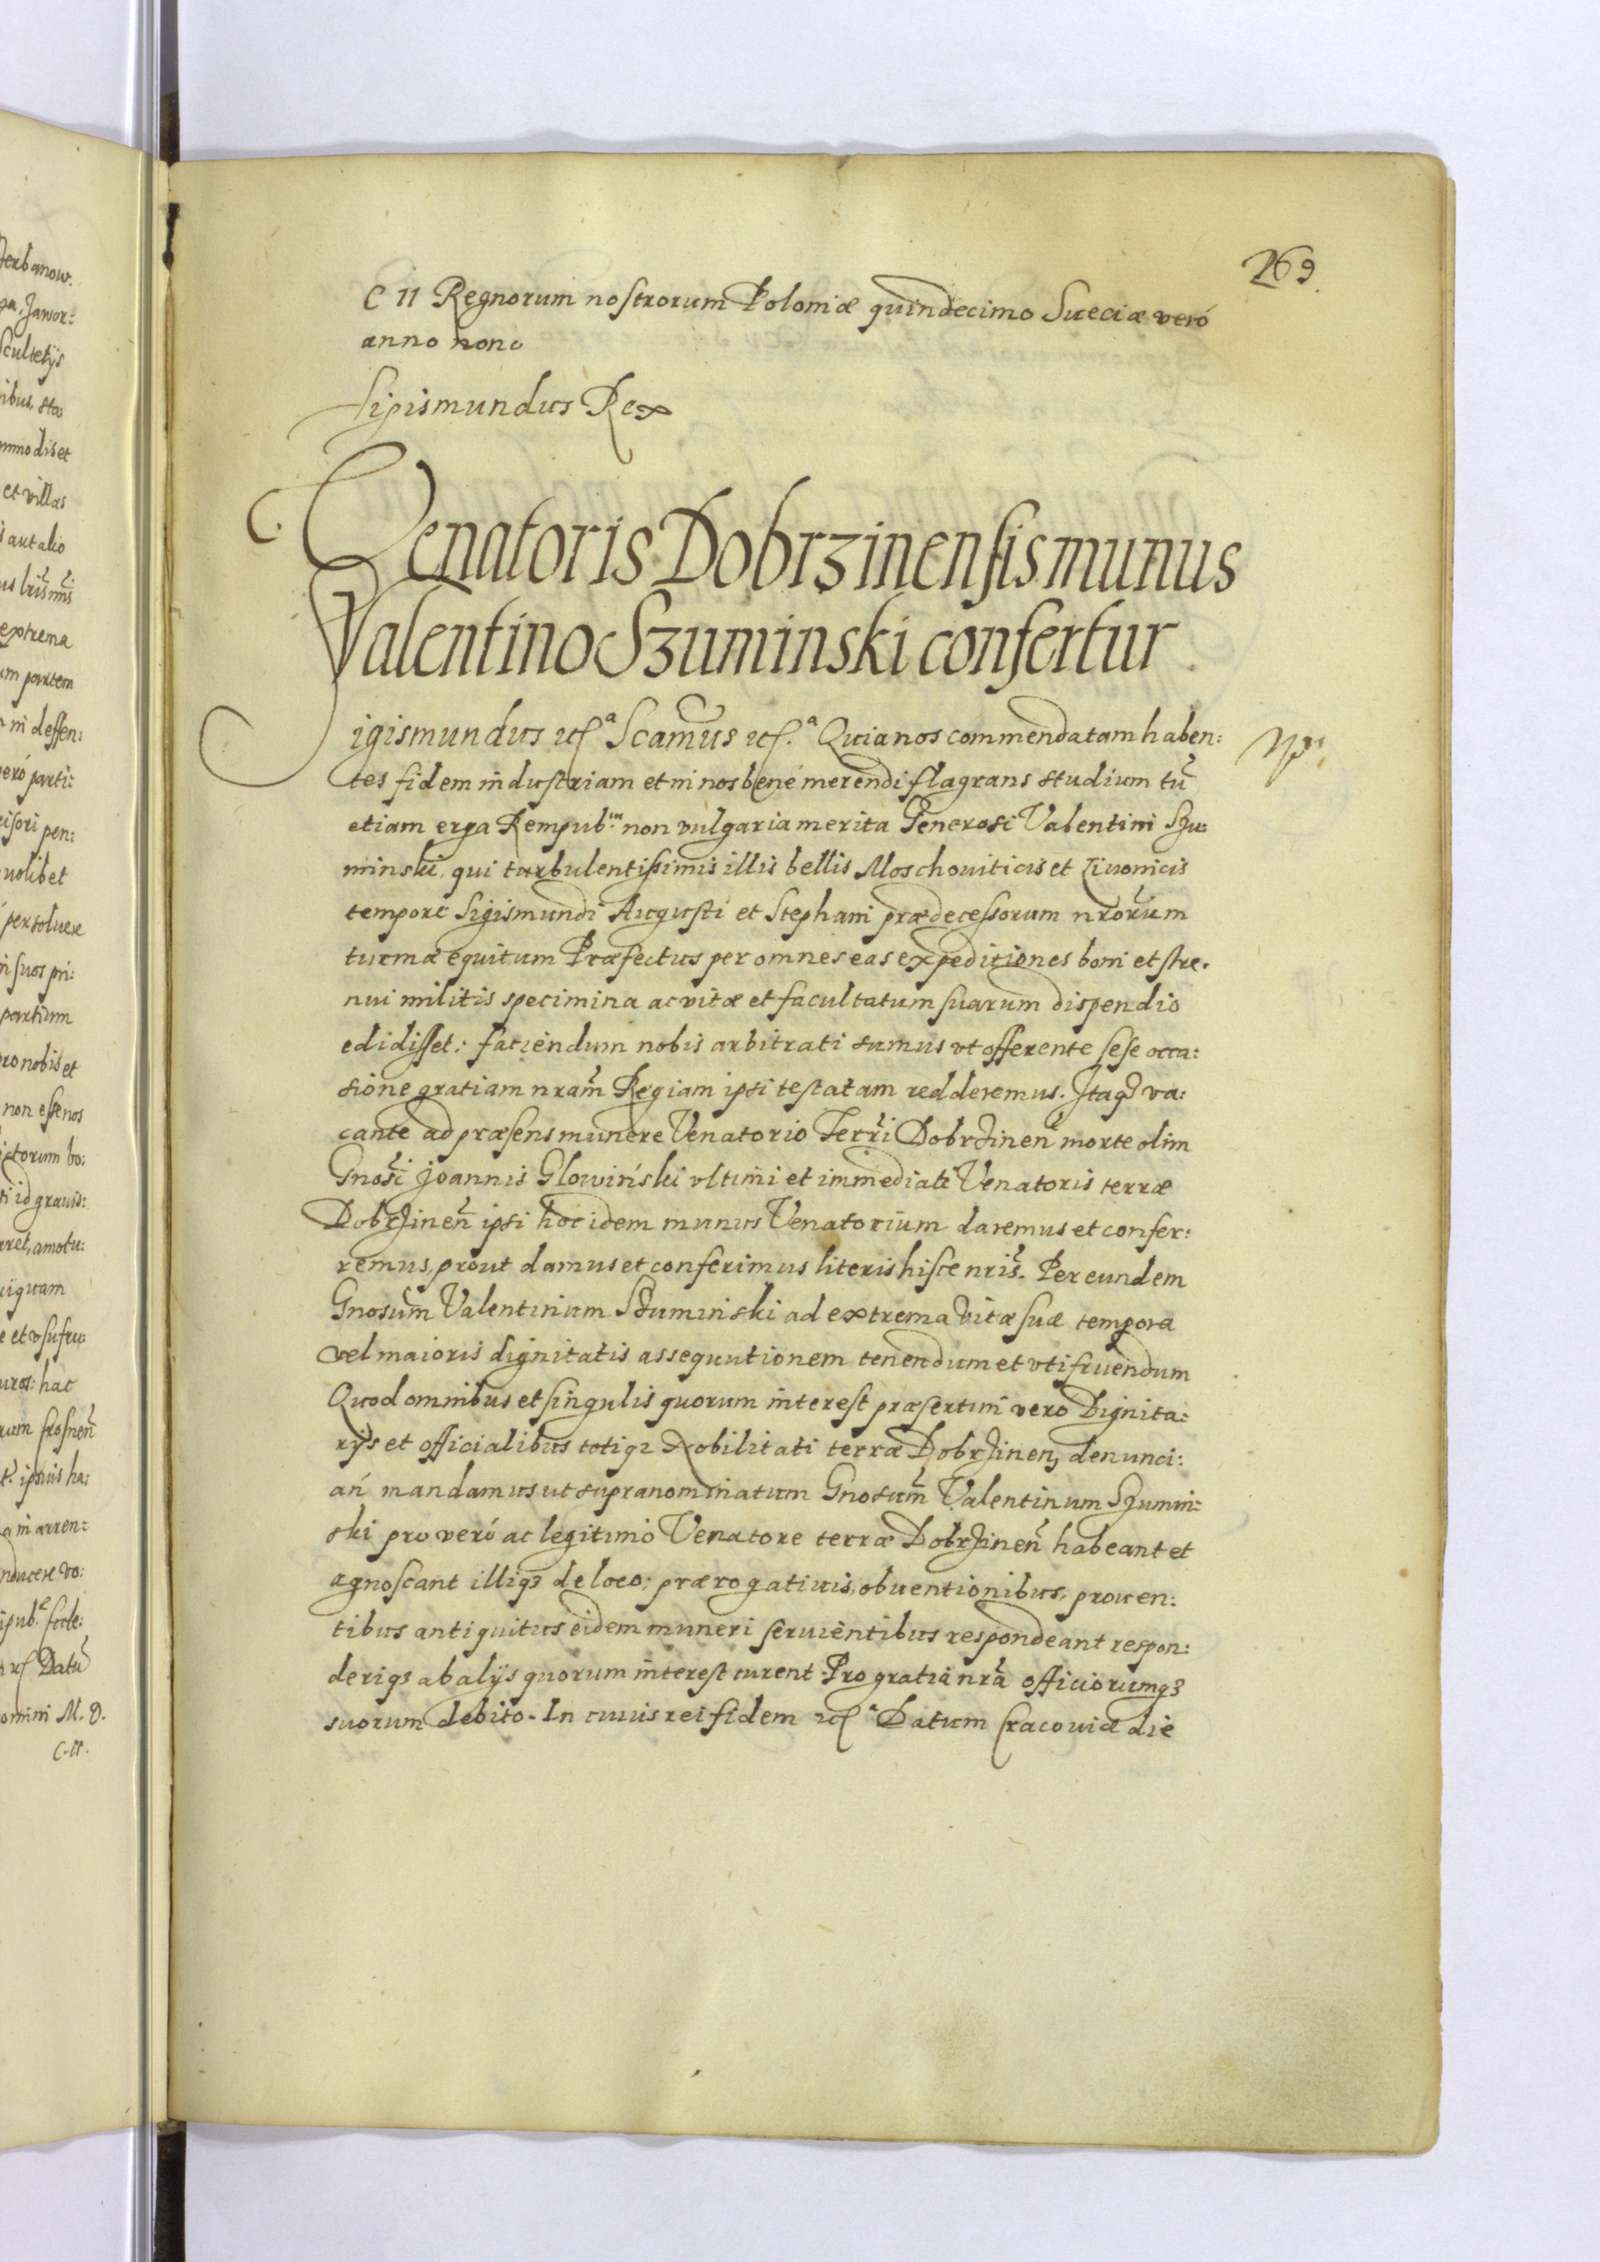 269.
C II Regnorum nostrorum Poloniæ quindecimo Sueciæ veró
anno nono
Sigismundus Rex
Venatoris Dobrzinensis munus
Valentino Szuminski confertur
Sigismundus etc.ª Scamus etc.ª Quia nos commendatam haben:
tes fidem industriam et in nos bené merendi flagrans studium tū
etiam erga Rempub.m non vulgaria merita Generosi Valentini Szu:
minski, qui turbulentissimis illis bellis Moschouiticis et Liuonicis
tempore Sigismundi Augusti et Stephani prædecessorum nrorum
turmæ equitum Præfectus per omnes eas expeditiones boni et stre:
nui militis specimina ac vitæ et facultatum suarum dispendio
edidisset: faciendum nobis arbitrati sumus vt offerente sese occa:
sione gratiam nram Regiam ipsi testatam redderemus. Itaq3 va:
cante ad præsens munere Venatorio Terri Dobrzinen morte olim
Gnosi Joannis Glowiński vltimi et immediati Venatoris terræ
Dobrzinen ipsi hoc idem munus Venatorium daremus et confer:
remus, prout damus et conferimus literis hisce nris. Per eundem
Gnosum Valentinum Szuminski ad extrema vitæ suæ tempora
vel maioris dignitatis assequutionem tenendum et vti fruendum
Quod omnibus et singulis quorum interest præsertim vero Dignita:
rijs et officialibus totiq3 Nobilitati terræ Dobrzinen, denunci:
an mandamus ut supranominatum Gnosum Valentinum Szumin:
ski pro veró ac legitimo Venatore terræ Dobrzinen habeant et
agnoscant illiq3 de loco, prærogatiuis, obuentionibus, prouen:
tibus antiquitus eidem muneri seruientibus respondeant respon:
deriq3 ab alijs quorum interest curent Pro gratia nra officiorumq3
suorum debito. In cuius rei fidem etc.ª Datum Cracouiæ die